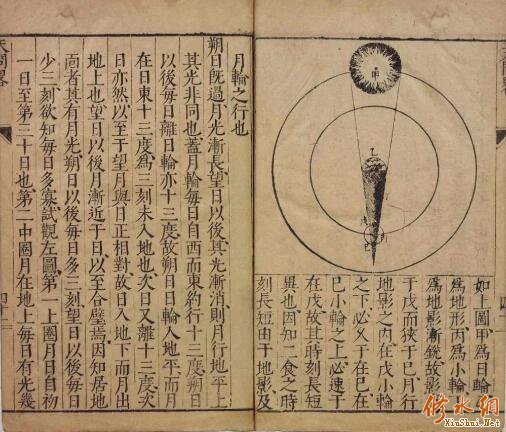 甲
乙
如上圖甲爲日輪
爲地形丙爲小輪
爲地影漸銳故影
于戊而狹于巳月行
地影之內在戊小輪
之下必久于在巳在
巳小輪之上必速于
在戊故其時刻長短
異也因知二食之時
刻長短由于地影及
月輪之行也
朔日旣過月光漸長望日以後其光漸消則月行地平上
其光非同也蓋月輪每日自西而東約行十三度朔日
以後每日離日輪亦十三度故朔日日輪入地平而月
在日東十三度爲三刻未入地也次日又離十三度次
日亦然以至于望月與日正相對故日入地下而月出
地上也望日以後月漸近于日以至合璧焉因知居地
面者其有月光朔日以後每日多三刻望日以後每日
少三刻欲知每日多寡試觀左圖第一上圈月日自初
一日至第三十日也第二中圈月在地上每日有光幾
天問畧
修水網
XiuShui.Net